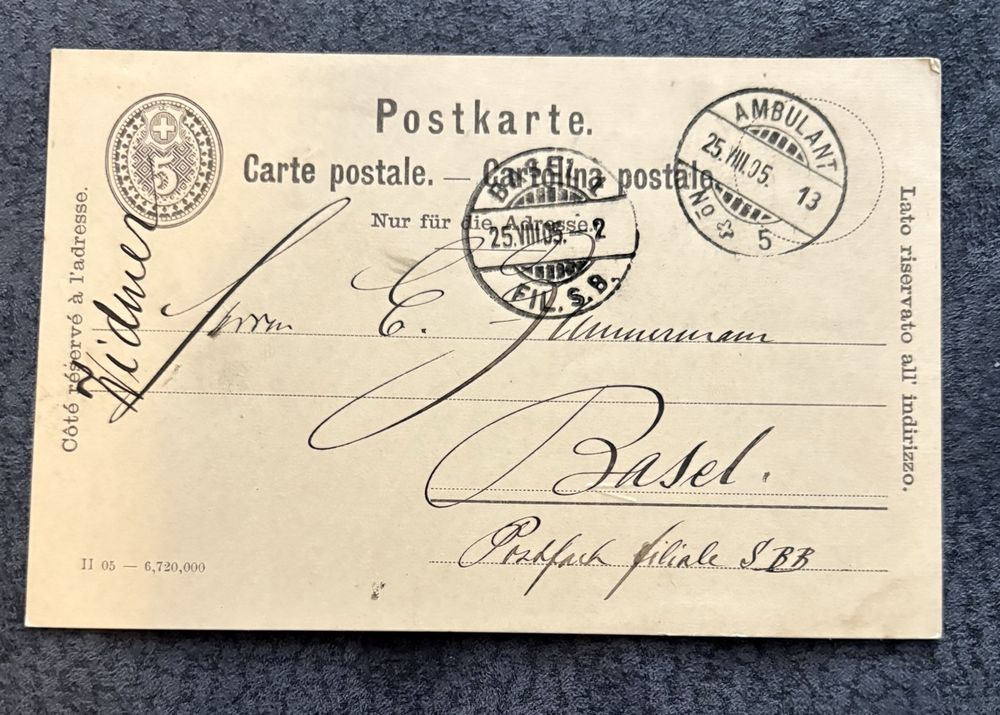 5
Postkarte.
Carte postale. — Cartolina postale.
Nur für die Adresse.
Côté réservé à l'adresse.
Lato riservato all' indirizzo.
AMBULANT
25.VIII.05. 13
No 5
BASEL
25.VIII.05.–2
FIL. S.B.
Widmer
Herrn E. Zimmermann
Basel.
Postfach filiale SBB
II 05 — 6,720,000